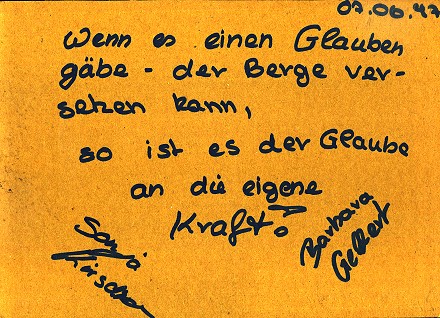 07.06.97
Wenn es einen Glauben
gäbe - der Berge ver-
setzen kann,
so ist es der Glaube
an die eigene
Kraft!
Sonja
Barbara
Gellert